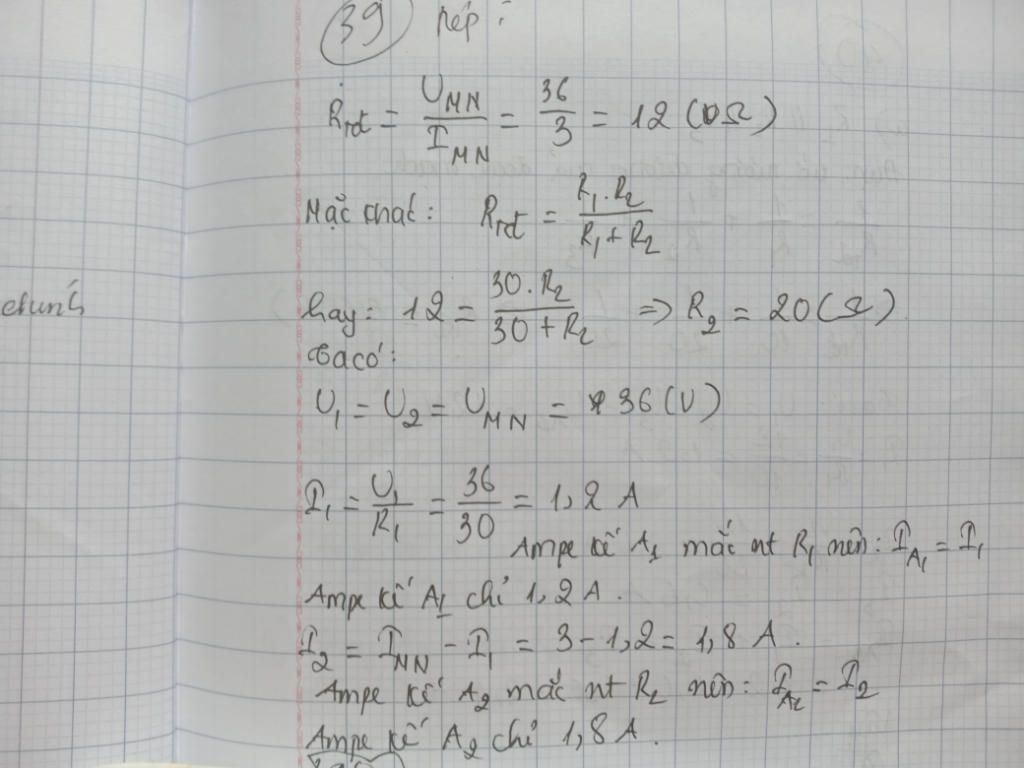 39 Tiếp :
Rtđ = U_MN / I_MN = 36/3 = 12 (Ω)
Mặc khác : Rtđ = R1 . R2 / R1 + R2
etum's
hay : 12 = 30 . R2 / 30 + R2 => R2 = 20 (Ω)
ta có :
U1 = U2 = U_MN = 36 (V)
I1 = U1 / R1 = 36 / 30 = 1,2 A
Ampe kế A1 mắc nt R1 nên : I_A1 = I1
Ampe kế A1 chỉ 1,2 A .
I2 = I_MN - I1 = 3 - 1,2 = 1,8 A .
Ampe kế A2 mắc nt R2 nên : I_A2 = I2
Ampe kế A2 chỉ 1,8 A .